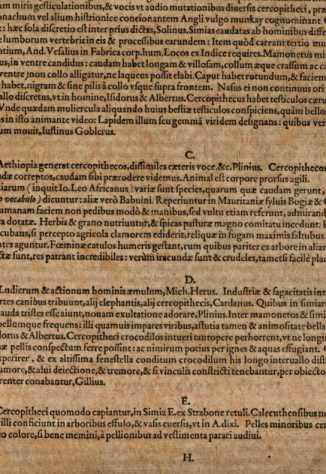 miris gesticulationibus, & vocis vt audio mutationibus diuersis cercopitheci, præ
nachum vel alium histrionice concionantem Angli vulgo munkay cognominant
: hæc sola discretio est inter prius dictos, Solinus. Simias caudatas ab hominibus diffe
lumborum vertebris in eis & processibus earundem: Item quòd careant tertio mu
tium, And. Vesalius in Fabrica corp. hum. Locos ex Indice requires. Mamonetus mi
us, in ventre candidus: caudam habet longam & villosam, collumque crassum ac c
ventre non collo alligatur, ne laqueus possit elabi. Caput habet rotundum, & faciem
habet, nigram & sine pilis à collo vsque supra frontem. Nasus ei non continuus ori
llo discretus, vt in homine, Isidorus & Albertus. Cercopithecus habet testiculos cæru
Vnde quædam muliercula aliquando huius bestiæ testiculos conspiciens, quàm bellos
s in isto animante video: Lapidem illum seu gemmã viridem designans: quibus ver
um mouit, Iustinus Goblerus.
C.
Aethiopia generat cercopithecos, dissimiles cæteris voce, &c. Plinius. Cercopithecos
ndæ correptos, caudam sibi prærodere videmus. Animal est corpore prorsus agili.
iarum (inquit Io. Leo Africanus) variæ sunt species, quarum quæ caudam gerunt,
o vocabulo) dicuntur: aliæ verò Babuini. Reperiuntur in Mauritaniæ syluis Bogiæ &
umanam faciem non pedibus modò & manibus, sed vultu etiam referunt, admirand
a dotatæ. Herbis & grano nutriuntur, & spicas pasturæ magno comitatu incedunt:
cubans, si percepto agricola clamorem ediderit, reliquæ in fugam maximis saltibus
ntes aguntur. Fœminæ catulos humeris gestant, cum quibus pariter ex arbore in aliam
ctæ sunt, res patrant incredibiles: verùm iracundæ sunt & crudeles, tametsi facilè plac
D.
Ludicrum & actionum hominis æmulum, Mich. Herus. Industriæ & sagacitatis int
rtes canibus tribuunt, alij elephantis, alij cercopithecis, Cardanus. Quibus in simiar
auda tristes esse aiunt, nouam exultatione adorare, Plinius. Inter mamonetos & simi
bellumque frequens: illi quamuis impares viribus, astutia tamen & animositate bella
lorus & Albertus. Cercopitheci crocodilos intueri tantopere perhorrent, vt ne longiu
uæ pellis conspectum ferre possint: ac nimirum potius per ignes & aquas effugiant.
xperirer, & ex altissima fenestella conditum crocodilum his longo interuallo dist
amore, & alui deiectione, & tremore, & si vinculis constricti tenebantur, per obiecto
renter conabantur, Gillius.
E.
Cercopitheci quomodo capiantur, in Simia E. ex Strabone retuli. Calecuthensibus ne
illi conficiunt in arboribus effusu, & valis euersis, vt in A. dixi. Pelles minoribus cer
ro colore, si bene memini, à pellionibus ad vestimenta parari audiui.
H.